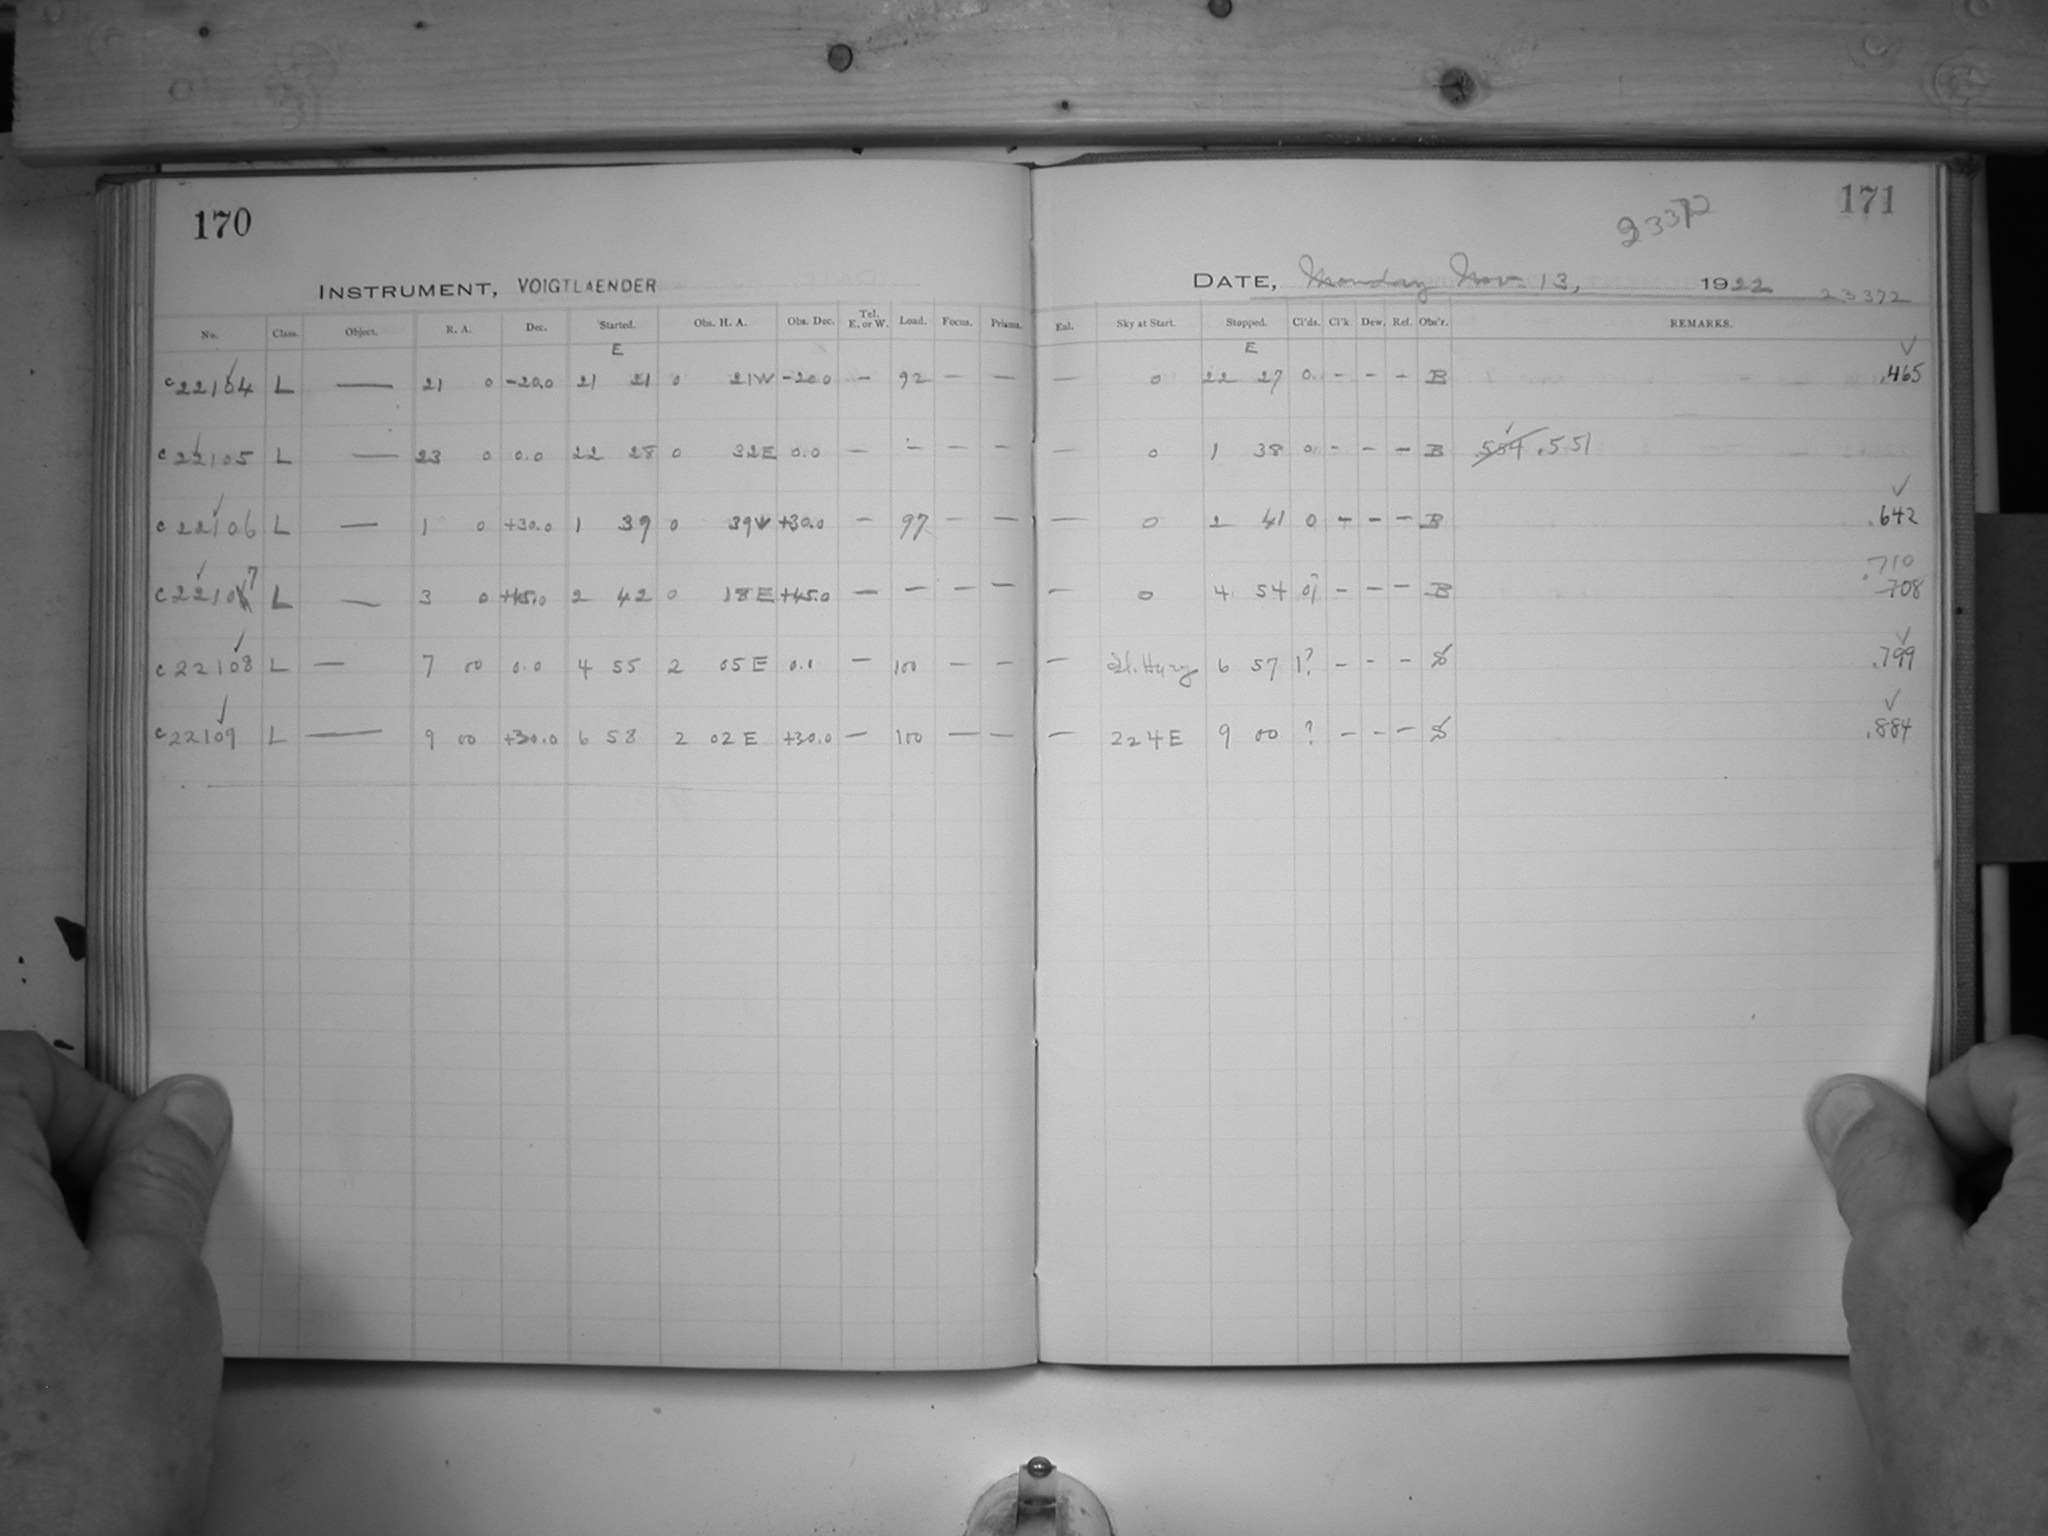 170
INSTRUMENT, VOIGTLAENDER
No. Class. Object. R. A. Dec. Started. Obs. H. A. Obs. Dec. Tel. E. or W. Load. Focus. Prisms.
E
c22104 L — 21 0 -20.0 21 21 0 21W -20.0 - 92 - -
c22105 L — 23 0 0.0 22 28 0 32E 0.0 - - - -
c22106 L — 1 0 +30.0 1 39 0 39W +30.0 - 97 - -
c22107 L — 3 0 +45.0 2 42 0 18E +45.0 - - - -
c22108 L — 7 00 0.0 4 55 2 05E 0.1 - 100 - -
c22109 L — 9 00 +30.0 6 58 2 02E +30.0 - 100 - -
171
23372
DATE, Monday Nov. 13, 1922 23372
Eal. Sky at Start. Stopped. Cl'ds. Cl'k. Dew. Rel. Obs'r. REMARKS.
E
— 0 22 27 0 - - - B .465
— 0 1 38 0 - - - B .554 .551
— 0 2 41 0 - - - B .642
.710
— 0 4 54 0? - - - B .708
— Sl. Hazy 6 57 1? - - - S .799
— 224E 9 00 ? - - - S .884